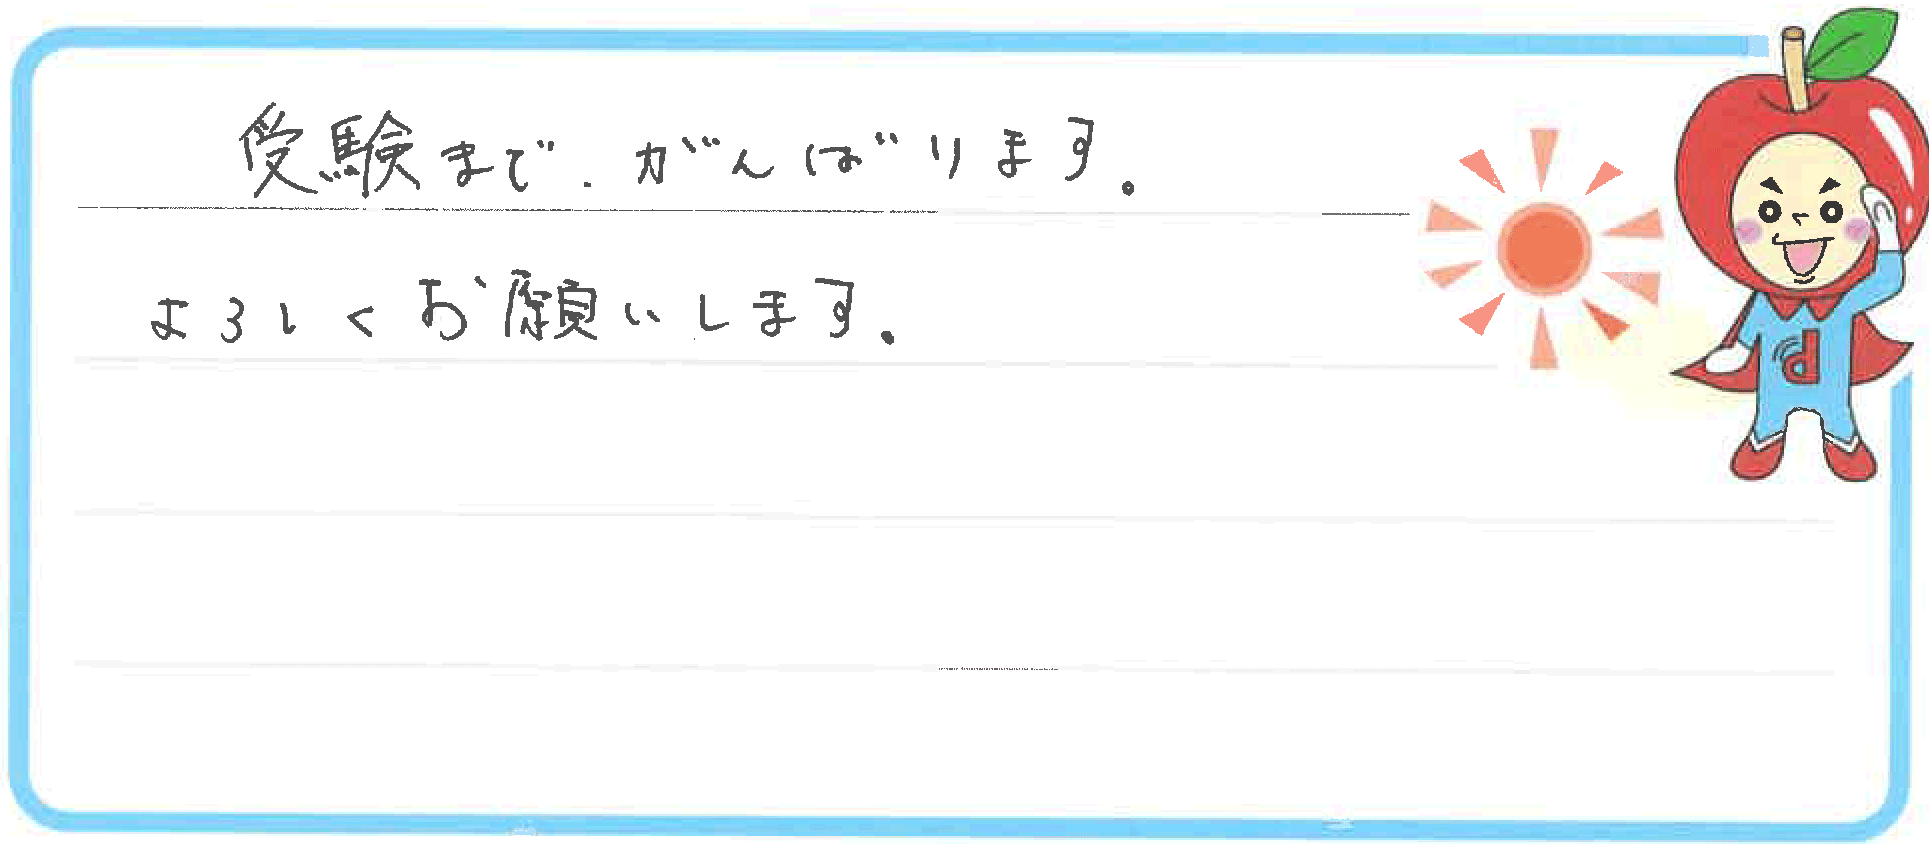 受験まで、がんばります。
よろしくお願いします。